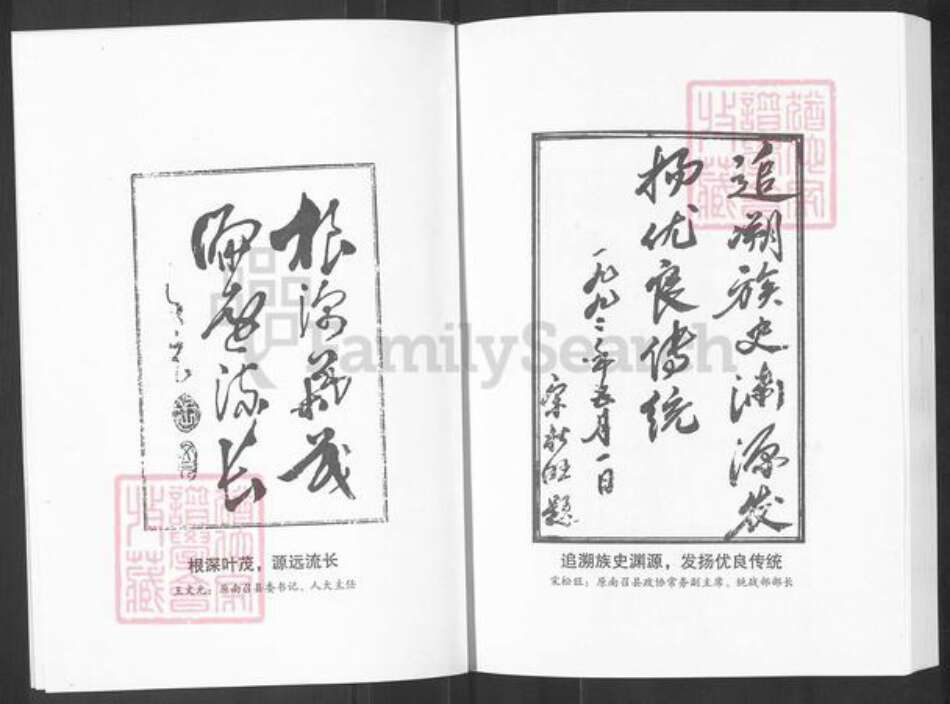 根深叶茂
源远流长
根深叶茂，源远流长
王文元：原南召县委书记、人大主任
追溯族史渊源发
扬优良传统
一九九三年五月一日
宋松旺题
追溯族史渊源，发扬优良传统
宋松旺：原南召县政协常务副主席、统战部部长
FamilySearch